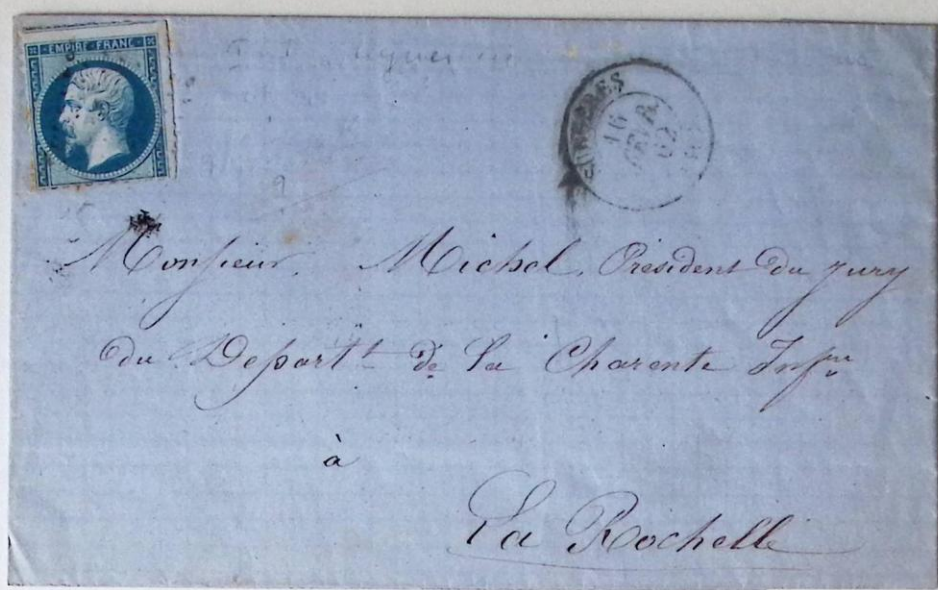 EMPIRE FRANC
16
FEVR
62
Monsieur Michel, Président du Jury
du Départt de la Charente Infre
à
La Rochelle